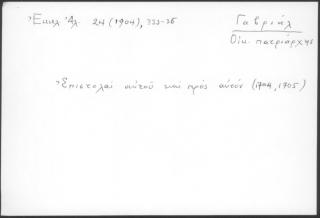 Ἐκκλ. Ἀλ. 24 (1904), 333-36
Γαβριὴλ
Οἰκ. πατριάρχης
Ἐπιστολαὶ αὐτοῦ καὶ πρὸς αὐτόν (1704, 1705)